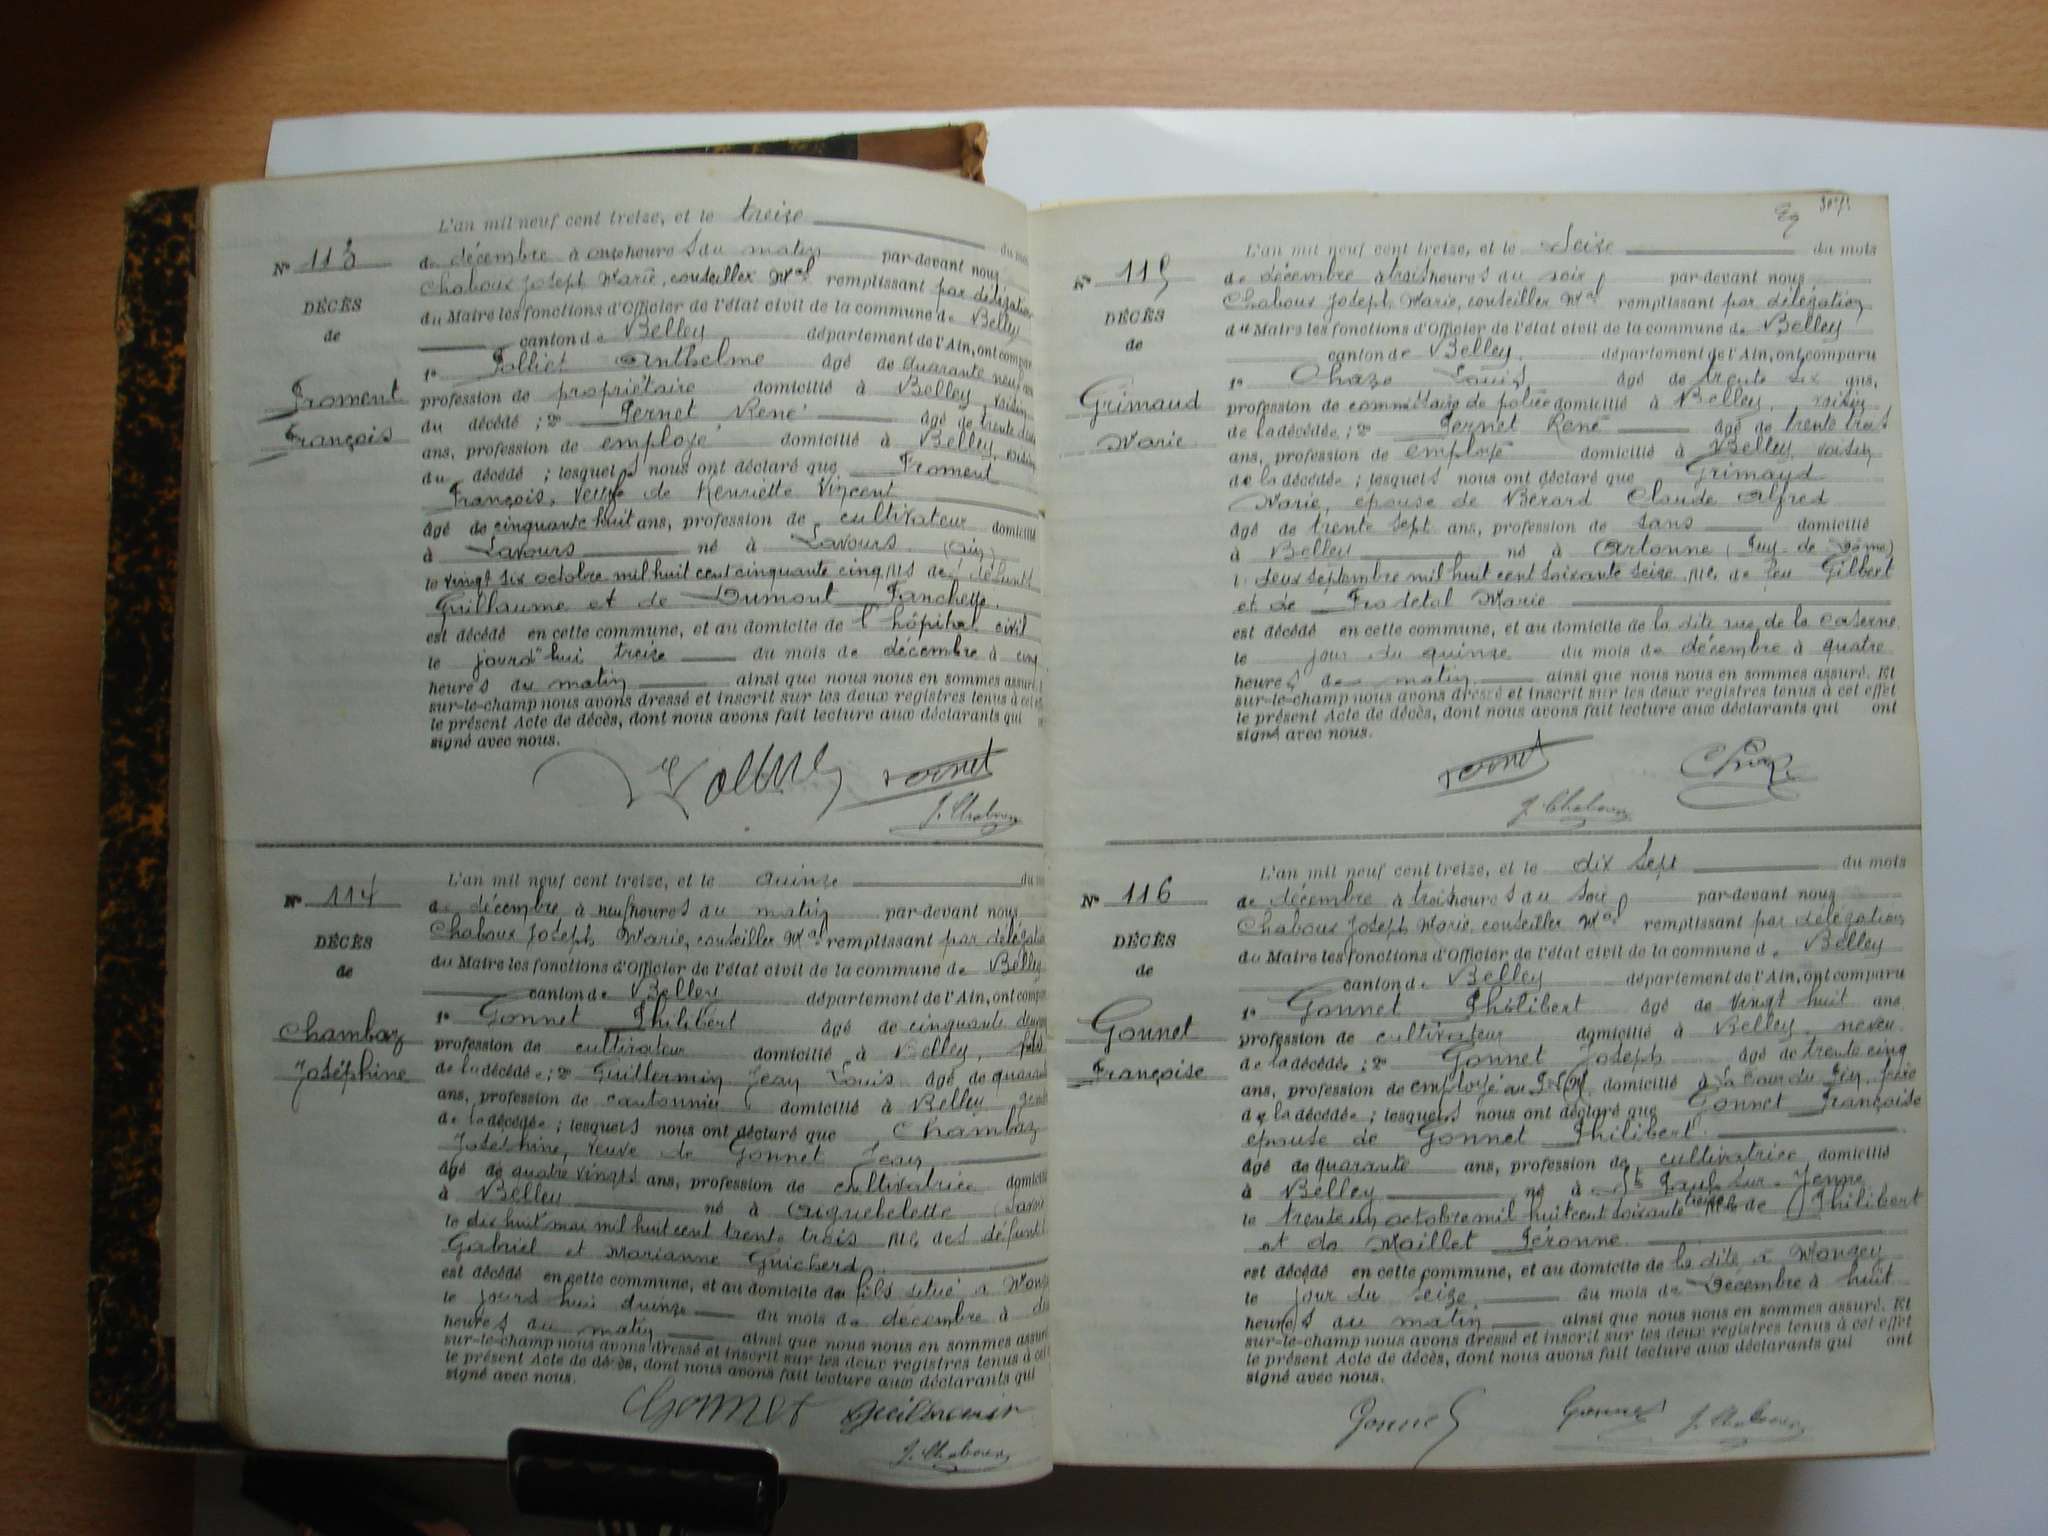 L'an mil neuf cent treize, et le treize du mois
N° 113
de décembre à onze heures du matin par-devant nous
Chaboux Joseph Marie, conseiller Mal remplissant par délégation
DÉCÈS
du Maire les fonctions d'Officier de l'état civil de la commune de Belley
de
canton de Belley département de l'Ain, ont comparu
1° Anthelme âgé de quarante neuf ans
Froment
profession de propriétaire domicilié à Belley, voisin
François
du décédé ; 2° Pernet René âgé de trente
ans, profession de employé domicilié à Belley, voisin
du décédé ; lesquels nous ont déclaré que Froment
François, veuf de Henriette Vincent
âgé de cinquante huit ans, profession de cultivateur domicilié
à Lavours né à Lavours (Ain)
le vingt six octobre mil huit cent cinquante cinq, fils de défunts
Guillaume et de Dumont Fanchette.
est décédé en cette commune, et au domicile de l'hôpital civil
le jourd'hui treize du mois de décembre à cinq
heures du matin ainsi que nous nous en sommes assuré.
sur-le-champ nous avons dressé et inscrit sur les deux registres tenus à cet
le présent Acte de décès, dont nous avons fait lecture aux déclarants qui
signé avec nous.
Pernet
J. Chaboux
L'an mil neuf cent treize, et le quinze du
N° 114
de décembre à neuf heures du matin par-devant nous
Chaboux Joseph Marie, conseiller Mal remplissant par délégation
DÉCÈS
du Maire les fonctions d'Officier de l'état civil de la commune de Belley
de
canton de Belley département de l'Ain, ont comparu
1° Gonnet Philibert âgé de cinquante
Chambaz
profession de cultivateur domicilié à Belley, fils
Joséphine
de la décédée ; 2° Guillermin Jean Louis âgé de
ans, profession de cantonnier domicilié à Belley
de la décédée ; lesquels nous ont déclaré que Chambaz
Joséphine, veuve de Gonnet Jean
âgé de quatre vingts ans, profession de cultivatrice domicilié
à Belley né à Aiguebelette (Savoie
le dix huit mai mil huit cent trente trois fille des défunts
Gabriel et Marianne Guicherd
est décédé en cette commune, et au domicile du fils situé à
le jourd'hui quinze du mois de décembre à
heures du matin ainsi que nous nous en sommes assuré
sur-le-champ nous avons dressé et inscrit sur les deux registres tenus à cet
le présent Acte de décès, dont nous avons fait lecture aux déclarants qui
signé avec nous.
Gonnet Guillermin
J. Chaboux
L'an mil neuf cent treize, et le seize du mois
N° 115
de décembre à trois heures du soir par-devant nous
Chaboux Joseph Marie, conseiller Mal remplissant par délégation
DÉCÈS
du Maire les fonctions d'Officier de l'état civil de la commune de Belley
de
canton de Belley. département de l'Ain, ont comparu
1° Chaze Louis âgé de trente six ans,
Grimaud
profession de commissaire de police domicilié à Belley, voisin
Marie
de la décédée ; 2° Pernet René âgé de trente trois
ans, profession de employé domicilié à Belley, voisin
de la décédée ; lesquels nous ont déclaré que Grimaud
Marie, épouse de Bérard Claude Alfred
âgé de trente sept ans, profession de sans domicilié
à Belley né à Artonne (Puy-de-Dôme)
deux septembre mil huit cent soixante seize fille de feu Gilbert
et de Marie
est décédé en cette commune, et au domicile de la dite rue de la Caserne
le jour du quinze du mois de décembre à quatre
heures du matin ainsi que nous nous en sommes assuré. Et
sur-le-champ nous avons dressé et inscrit sur les deux registres tenus à cet effet
le présent Acte de décès, dont nous avons fait lecture aux déclarants qui ont
signé avec nous.
Pernet Chaze
J. Chaboux
L'an mil neuf cent treize, et le dix sept du mois
N° 116
de décembre à trois heures du soir par-devant nous
Chaboux Joseph Marie, conseiller Mal remplissant par délégation
DÉCÈS
du Maire les fonctions d'Officier de l'état civil de la commune de Belley
de
canton de Belley département de l'Ain, ont comparu
1° Gonnet Philibert âgé de vingt huit ans
Gonnet
profession de cultivateur domicilié à Belley, neveu
Françoise
de la décédée ; 2° Gonnet Joseph âgé de trente cinq
ans, profession de employé au P.L.M. domicilié à La Tour du Pin, frère
de la décédée ; lesquels nous ont déclaré que Gonnet Françoise
épouse de Gonnet Philibert.
âgé de quarante ans, profession de cultivatrice domicilié
à Belley né à St Paul-sur-Yenne
le trente un octobre mil huit cent soixante treize fille de Philibert
et de Maillet Péronne
est décédé en cette commune, et au domicile de la dite à
le jour du seize du mois de Décembre à huit
heures du matin ainsi que nous nous en sommes assuré. Et
sur-le-champ nous avons dressé et inscrit sur les deux registres tenus à cet effet
le présent Acte de décès, dont nous avons fait lecture aux déclarants qui ont
signé avec nous.
Gonnet Gonnet J. Chaboux